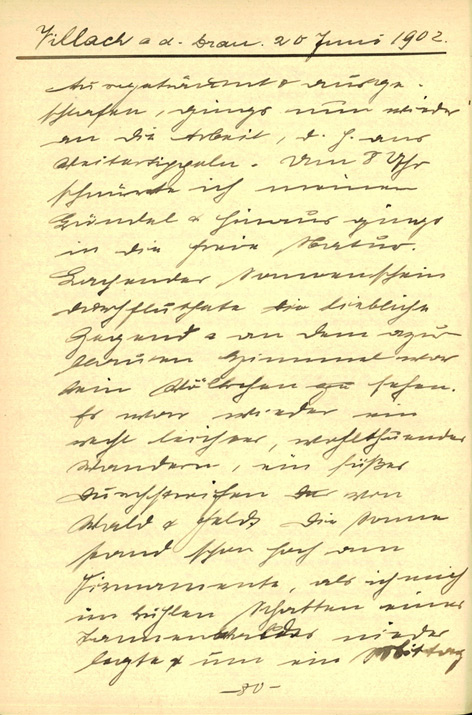 Villach a. d. Drau. 20 Juni 1902.
Ausgeträumt & ausge-
schlafen, gings nun wieder
an die Arbeit, d. h. ans
Weitertippeln. Um 8 Uhr
schnürte ich meinen
Bündel & hinaus gings
in die freie Natur.
Lachender Sonnenschein
durchfluthete die liebliche
Gegend & an dem azur
blauen Himmel war
kein Wölkchen zu sehen.
Es war wieder ein
recht leichtes, wohlthuendes
Wandern, ein süßes
Durchstreifen von
Wald & Feld. Die Sonne
stand schon hoch am
Firmamente, als ich mich
im kühlen Schatten eines
Tannenwaldes nieder
legte & um ein Mittag
-80-